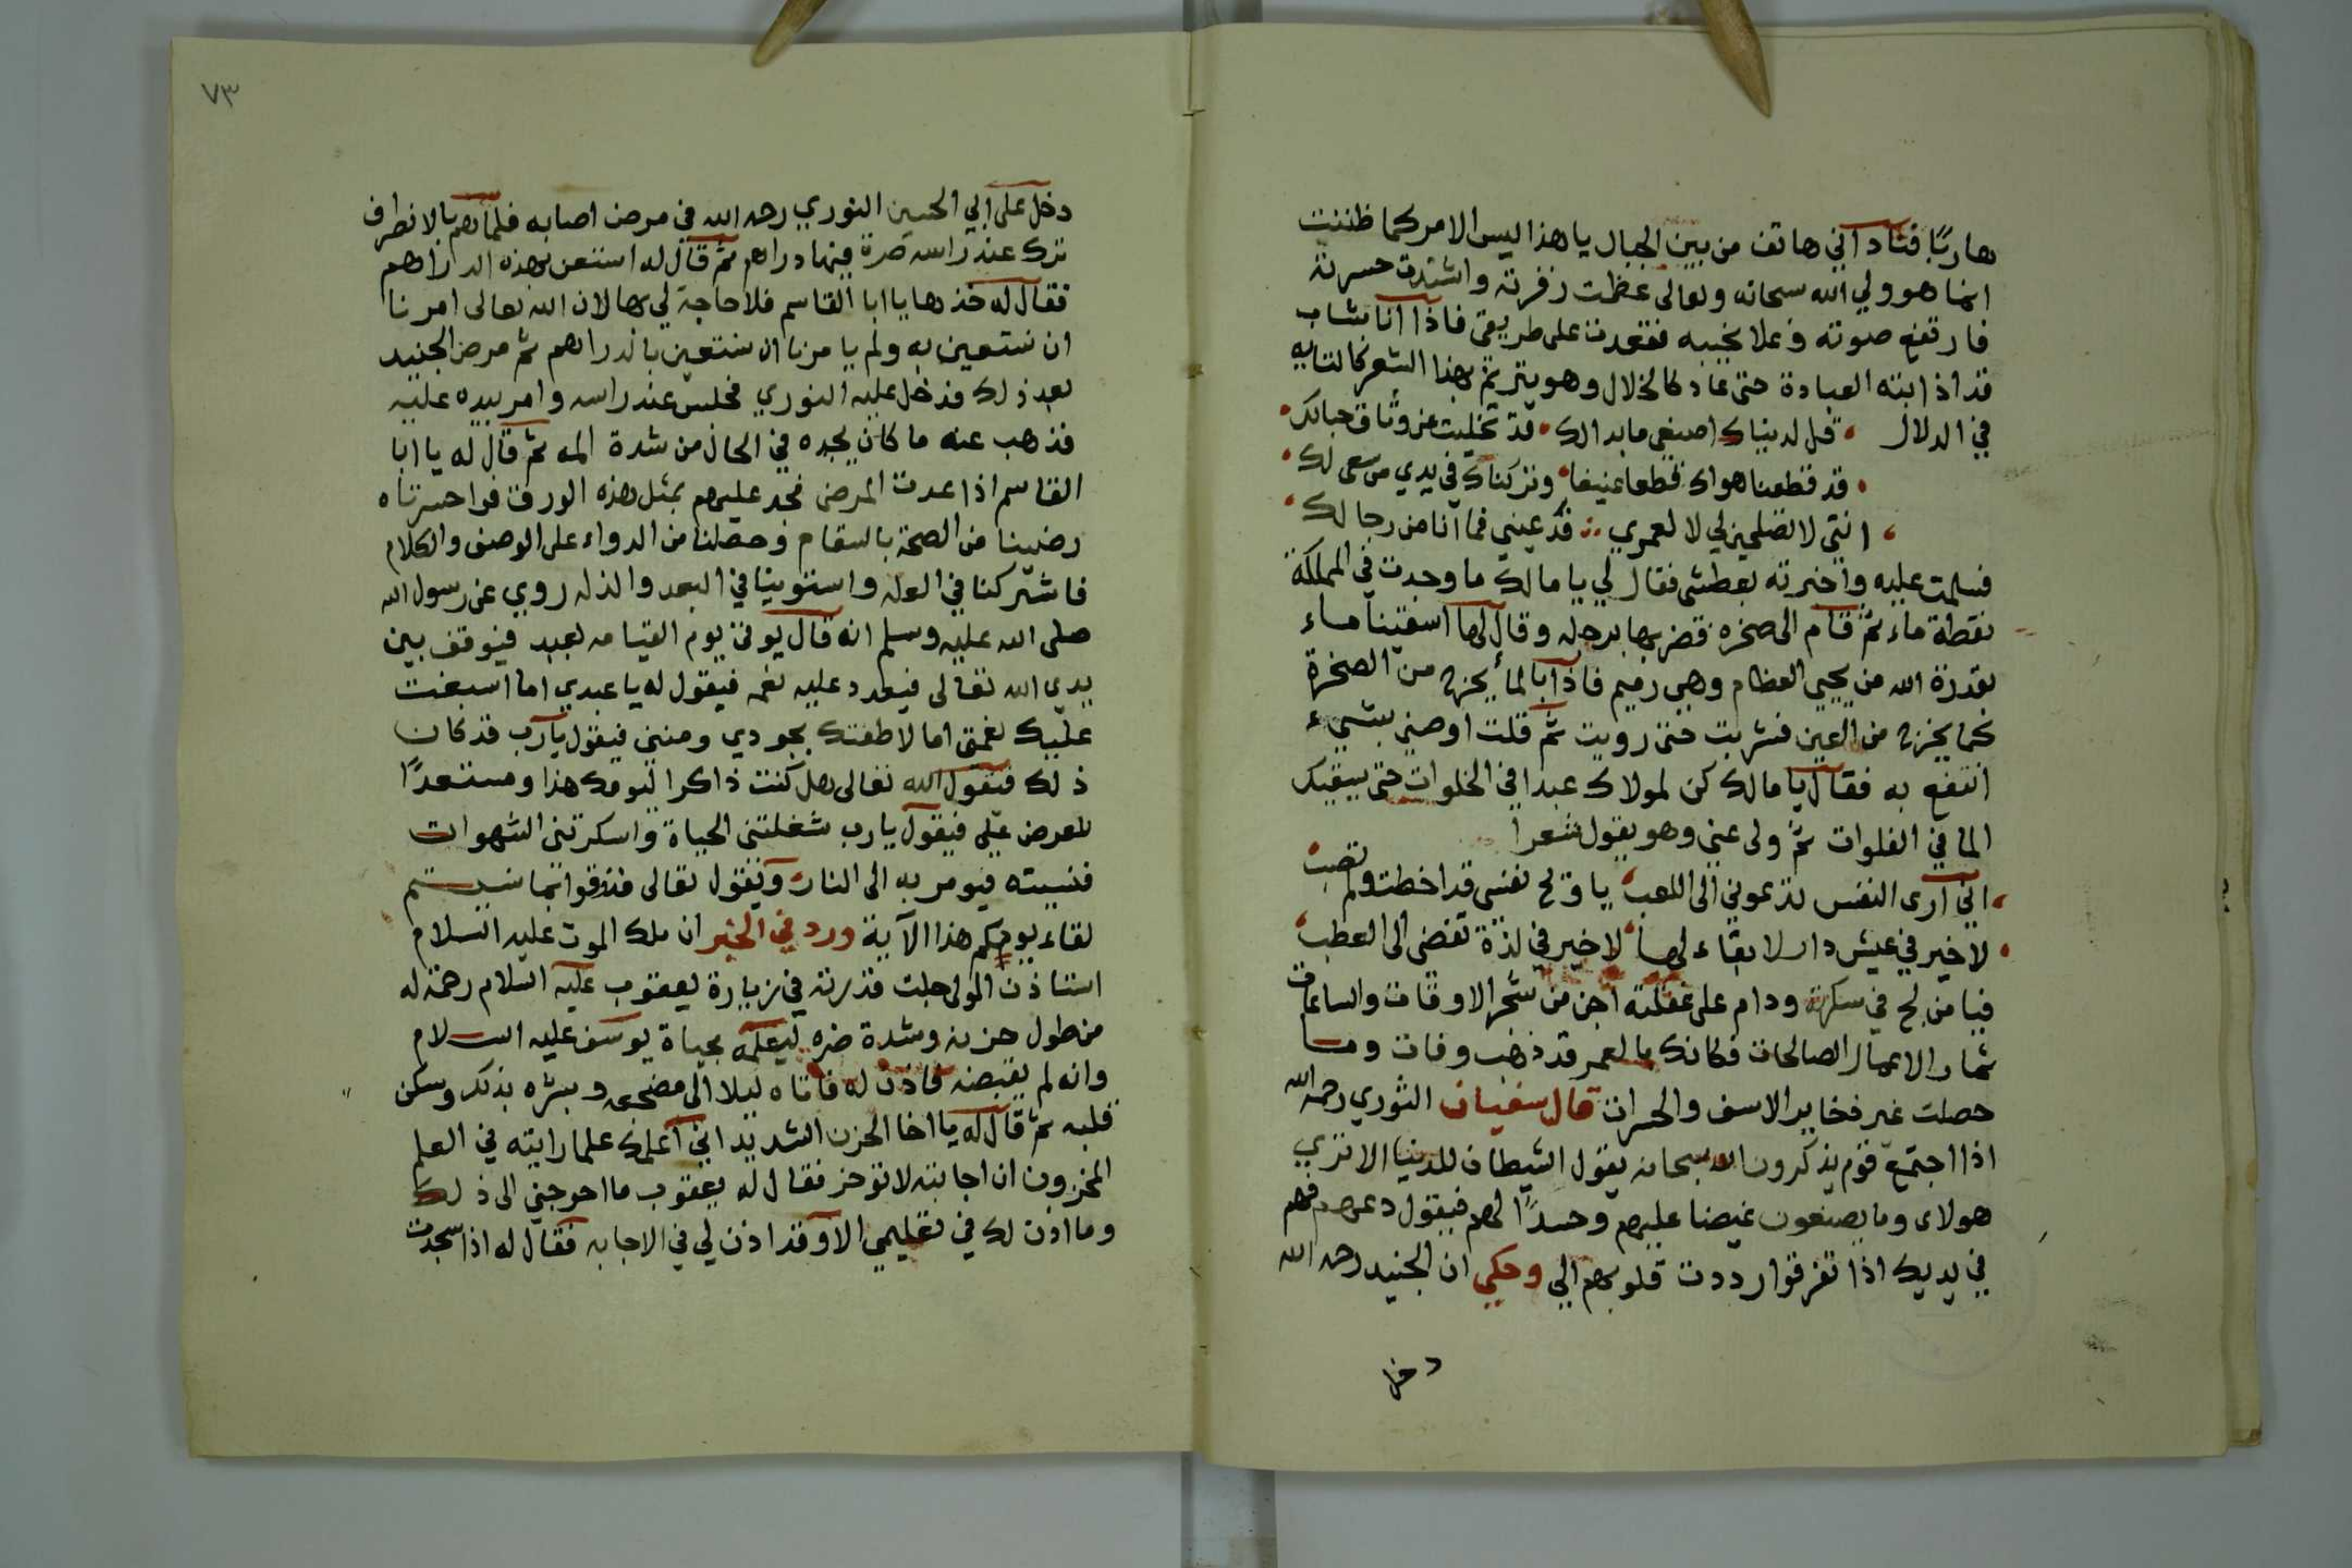 هاربًا فناداني هاتف من بين الجبال يا هذا ليس الامر كما ظننت
انما هو ولي الله سبحانه وتعالى عظمت زفرته واشتدت حسرته
فارتفع صوته وعلا نحيبه فقعدت على طريقي فاذا انا بشاب
قد اذابته العبادة حتى عاد كالخلال وهو يترنم بهذا الشعر كالتايه
في الدلال قل لدنياك اصنعي ما بدالك قد تخليت عن وثاق حبالك
قد قطعنا هواك قطعا عنيفا وتركناك في يدي من سعى لك
انتي لا تصلحين لي لا لعمري فدعيني فما انا من رجالك
فسلمت عليه واخبرته بعطشى فقال لي يا مالك ما وجدت في المملكة
نقطة ماء ثم قام الى صخره فضربها برجله وقال لها اسقينا ماء
بقدرة الله من يحيي العظام وهي رميم فاذا بالماء يخرج من الصخرة
كما يخرج من العين فشربت حتى رويت ثم قلت اوصني بشيء
انتفع به فقال يا مالك كن لمولاك عبدا في الخلوات حتى يسقيك
الما في الفلوات ثم ولى عني وهو يقول شعرا
اني ارى النفس تدعوني الى اللعب يا ويح نفسي قد اخطت ولم تصب
لا خير في عيش دار لا بقاء لها لا خير في لذة تفضى الى العطب
فيا من لج في سكرته ودام على غفلته اجن من شجر الاوقات والساعات
ثمار الاعمال الصالحات فكانك بالعمر قد ذهب وفات وما
حصلت غير فخاير الاسف والحسرات قال سفيان الثوري رحمه الله
اذا اجتمع قوم يذكرون الله سبحانه يقول الشيطان للدنيا الا تري
هولاى وما يصنعون غيضا عليهم وحسدًا لهم فيقول دعهم فهم
في يديك اذا تفرقوا رددت قلوبهم الي وحكي ان الجنيد رحمه الله
دخل
٧٣
دخل على ابي الحسين النوري رحمه الله في مرض اصابه فلما هم بالانطراف
ترك عند راسه صرة فيها دراهم ثم قال له استعن بهذه الدراهم
فقال له خذها يا ابا القاسم فلا حاجة لي بها لان الله تعالى امرنا
ان نستعين به ولم يامرنا ان نستعين بالدراهم ثم مرض الجنيد
بعد ذلك فدخل عليه النوري فجلس عند راسه وامر بيده عليه
فذهب عنه ما كان يجده في الحال من شدة المه ثم قال له يا ابا
القاسم اذا عدت المرض فجد عليهم بمثل هذه الورقه فواحسرتاه
رضينا من الصحة بالسقام وحصلنا من الدواء على الوصف والكلام
فاشتركنا في العله واستوينا في البعد والذله روي عن رسول الله
صلى الله عليه وسلم انه قال يوتى يوم القيامه بعبد فيوقف بين
يدي الله تعالى فيعدد عليه نعمه فيقول له يا عبدي اما اسبغت
عليك نعمتي اما لاطفتك بجودي ومنني فيقول يا رب قد كان
ذلك فيقول الله تعالى هل كنت ذاكرا ليومك هذا ومستعدًا
للعرض علي فيقول يا رب شغلتني الحياة واسكرتني الشهوات
فنسيته فيومر به الى النار ويقول تعالى فذوقوا بما نسيتم
لقاء يومكم هذا الآية ورد في الخبر ان ملك الموت عليه السلام
استاذن المولى جلت قدرته في زيارة يعقوب عليه السلام رحمة له
من طول حزنه وشدة ضره ليعلمه بحياة يوسف عليه السلام
وانه لم يقبضه فاذن له فاتاه ليلا الى مضجعه وبشره بذلك وسكن
قلبه ثم قال له يا اخا الحزن الشديد اني اعلمك علما رايته في العلم
المخزون ان اجابته لا توخر فقال له يعقوب ما احوجني الى ذلك
وما اذن لك في تعليمي الا وقد اذن لي في الاجابه فقال له اذا سجدت